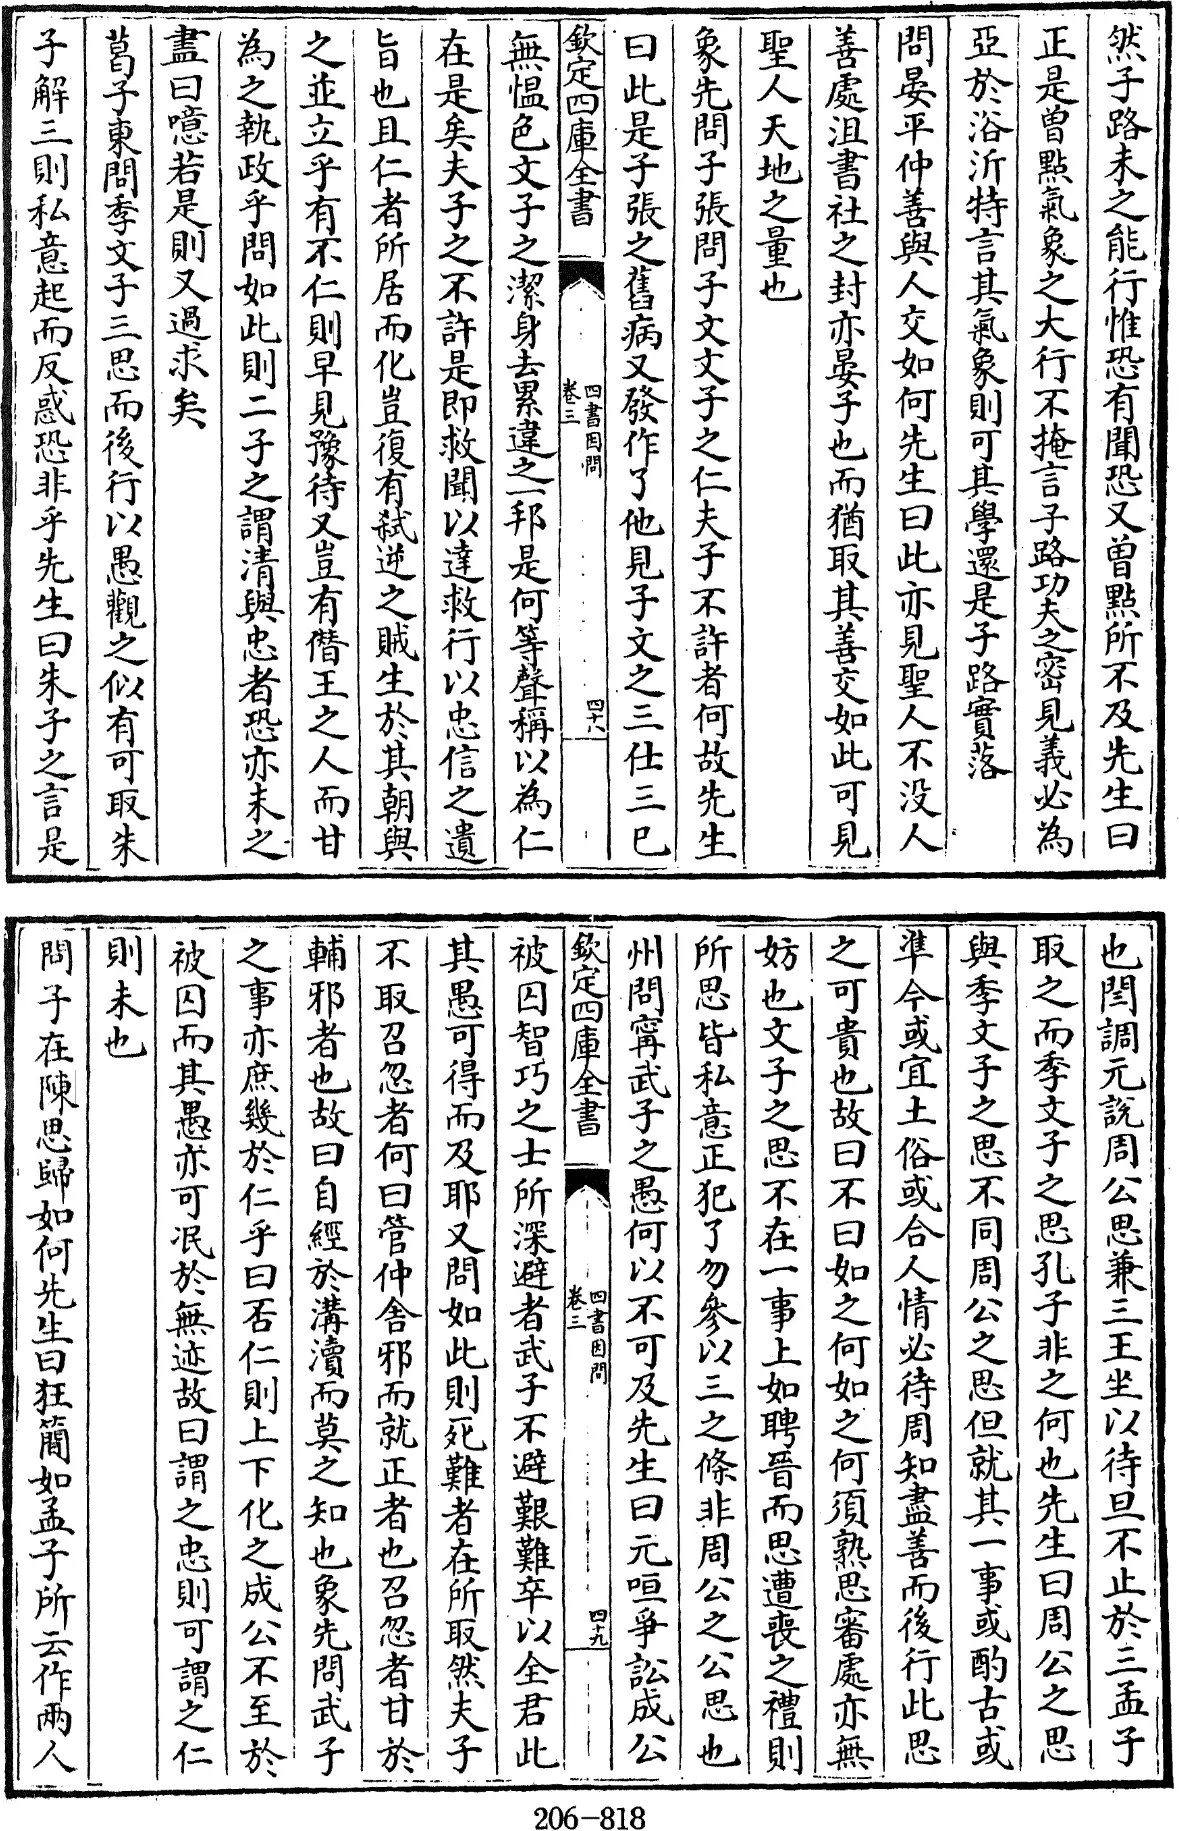 然子路未之能行惟恐有聞恐又曽㸃所不及先生曰
正是曽㸃氣象之大行不掩言子路功夫之密見義必為
亞於浴沂特言其氣象則可其學還是子路實落
問晏平仲善與人交如何先生曰此亦見聖人不没人
善處沮書社之封亦晏子也而猶取其善交如此可見
聖人天地之量也
象先問子張問子文文子之仁夫子不許者何故先生
曰此是子張之舊病又發作了他見子文之三仕三已
欽定四庫全書
四書因問
卷三
四十八
無愠色文子之潔身去累違之一邦是何等聲稱以為仁
在是矣夫子之不許是即救聞以達救行以忠信之遺
旨也且仁者所居而化豈復有弑逆之賊生於其朝與
之並立乎有不仁則早見豫待又豈有僭王之人而甘
為之執政乎問如此則二子之謂清與忠者恐亦未之
盡曰噫若是則又過求矣
葛子東問季文子三思而後行以愚觀之似有可取朱
子解三則私意起而反惑恐非乎先生曰朱子之言是
也閆調元說周公思兼三王坐以待旦不止於三孟子
取之而季文子之思孔子非之何也先生曰周公之思
與季文子之思不同周公之思但就其一事或酌古或
準今或宜土俗或合人情必待周知盡善而後行此思
之可貴也故曰不曰如之何如之何須熟思審處亦無
妨也文子之思不在一事上如聘晉而思遭喪之禮則
所思皆私意正犯了勿參以三之條非周公之公思也
州問寗武子之愚何以不可及先生曰元咺爭訟成公
欽定四庫全書
四書因問
卷三
四十九
被囚智巧之士所深避者武子不避艱難卒以全君此
其愚可得而及耶又問如此則死難者在所取然夫子
不取召忽者何曰管仲舍邪而就正者也召忽者甘於
輔邪者也故曰自經於溝瀆而莫之知也象先問武子
之事亦庶幾於仁乎曰否仁則上下化之成公不至於
被囚而其愚亦可泯於無迹故曰謂之忠則可謂之仁
則未也
問子在陳思歸如何先生曰狂簡如孟子所云作兩人
206-818